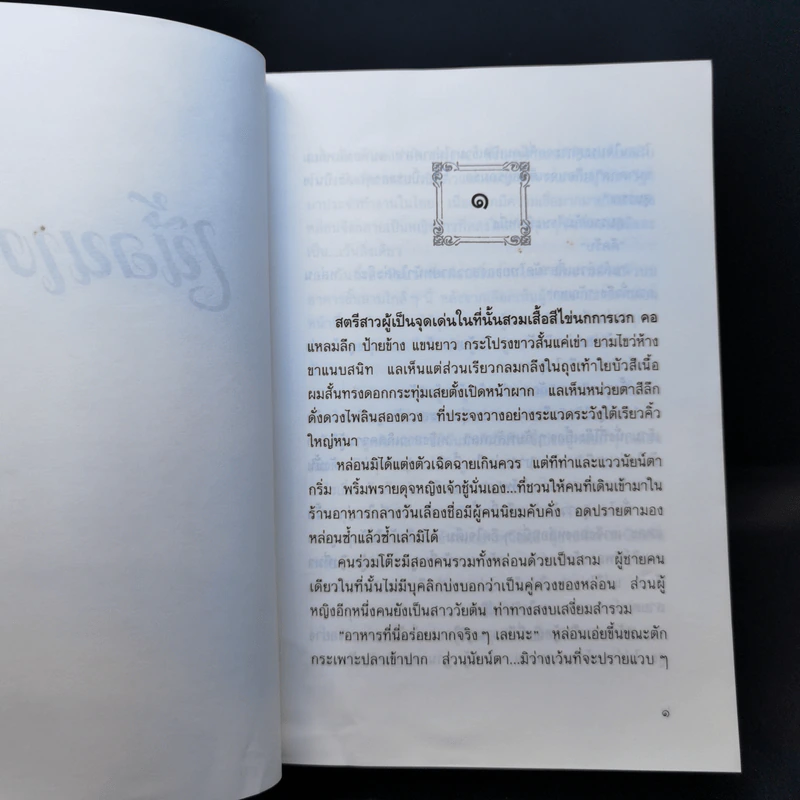 ๑
สตรีสาวผู้เป็นจุดเด่นในที่นั้นสวมเสื้อสีไข่นกการเวก คอ
แหลมลึก ป้ายข้าง แขนยาว กระโปรงขาวสั้นแค่เข่า ยามไขว่ห้าง
ขาแนบสนิท แลเห็นแต่ส่วนเรียวกลมกลึงในถุงเท้าใยบัวสีเนื้อ
ผมสั้นทรงดอกกระทุ่มเสยตั้งเปิดหน้าผาก แลเห็นหน่วยตาสีลึก
ดั่งดวงไพลินสองดวง ที่ประจงวางอย่างระแวดระวังใต้เรียวคิ้ว
ใหญ่หนา
หล่อนมิได้แต่งตัวเฉิดฉายเกินควร แต่ทีท่าและแววนัยน์ตา
กริ่ม พริ้มพรายดุจหญิงเจ้าชู้นั่นเอง...ที่ชวนให้คนที่เดินเข้ามาใน
ร้านอาหารกลางวันเลื่องชื่อมีผู้คนนิยมคับคั่ง อดปรายตามอง
หล่อนซ้ำแล้วซ้ำเล่ามิได้
คนร่วมโต๊ะมีสองคนรวมทั้งหล่อนด้วยเป็นสาม ผู้ชายคน
เดียวในที่นั้นไม่มีบุคลิกบ่งบอกว่าเป็นคู่ควงของหล่อน ส่วนผู้
หญิงอีกหนึ่งคนยังเป็นสาววัยต้น ท่าทางสงบเสงี่ยมสำรวม
"อาหารที่นี่อร่อยมากจริงๆ เลยนะ" หล่อนเอ่ยขึ้นขณะตัก
กระเพาะปลาเข้าปาก ส่วนนัยน์ตา...มิว่างเว้นที่จะปรายแวบๆ
๑